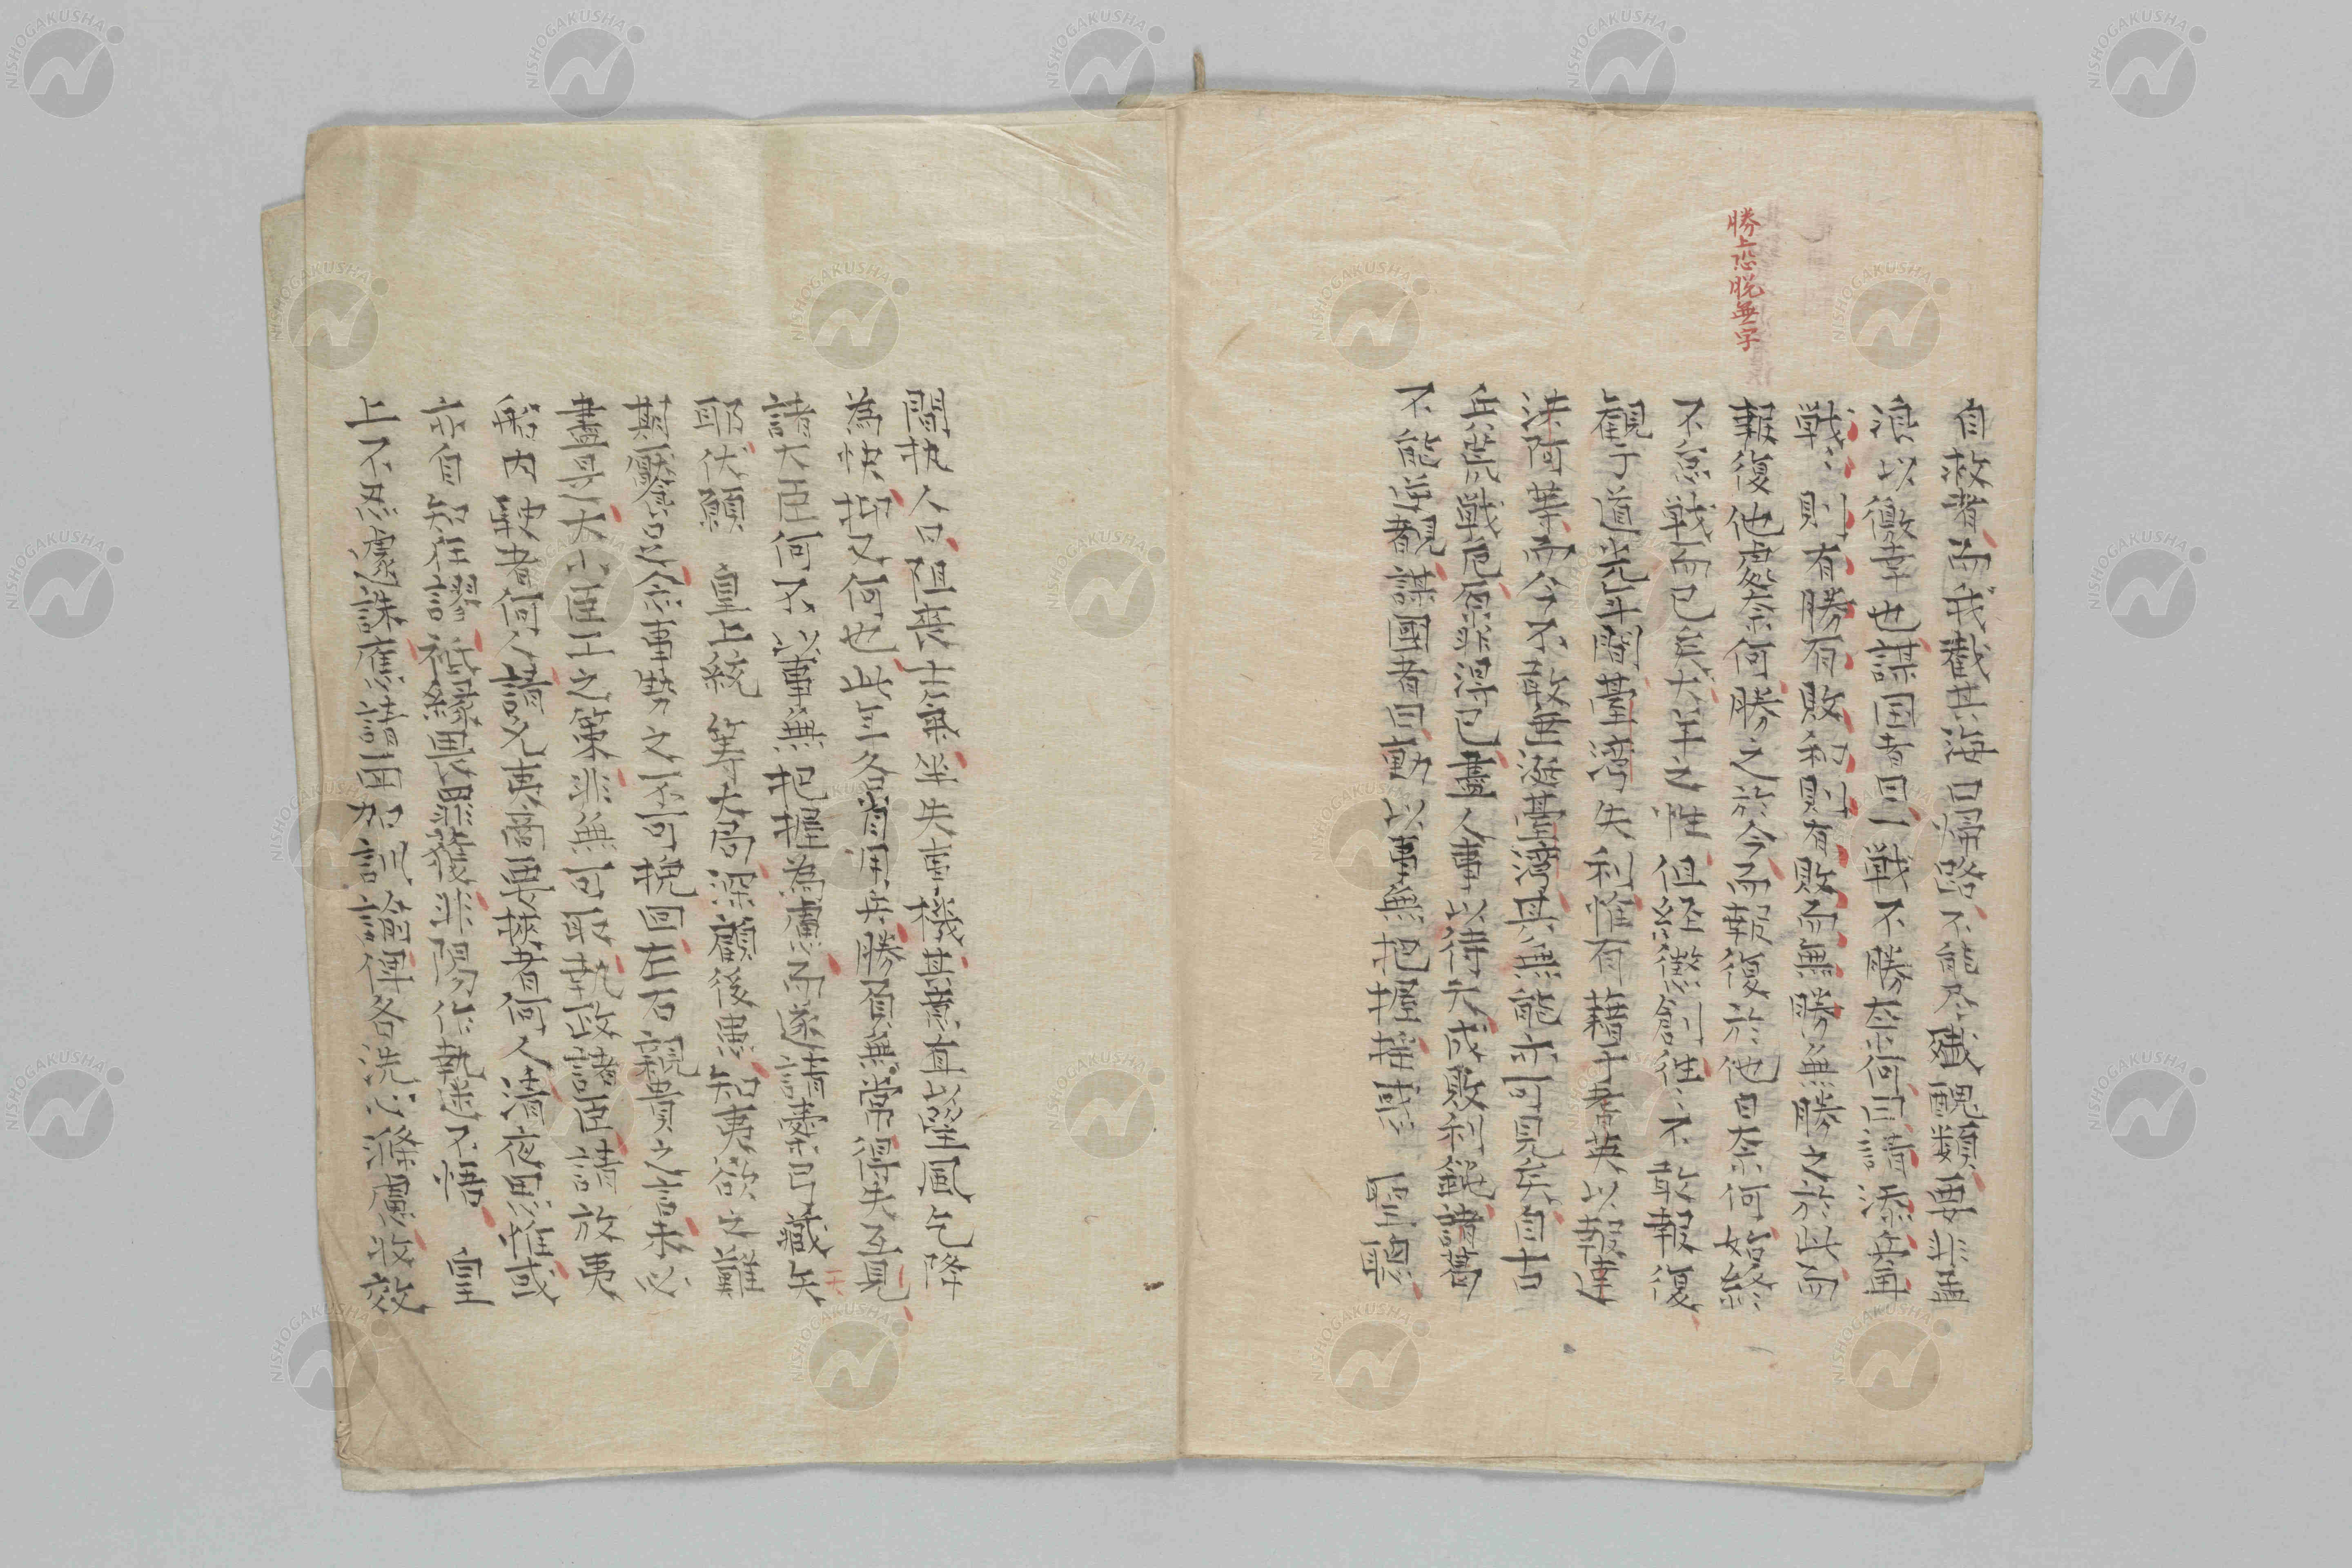 自救諸而我截其海口歸路不能殄殲醜類要非孟
浪以徼幸也謀国者曰一戦不勝奈何曰請添兵再
戦〻則有勝有敗和則有敗而無勝無勝之於此而
報復他處奈何勝之於今而報復於他日奈何始終
不忘戦而已矣犬羊之性但经懲創徃〻不敢報復
觀于道光年間臺湾失利惟有藉手耆英以報達
洪阿等而今不敢再涎臺湾其無能亦可見矣自古
兵荒戰危原非得已盡人事以待天成敗利鈍諸葛
不能逆覩謀國者曰動以事無把握揺惑 聖聽
勝上恐脱無字
間执人口阻喪士氣坐失事機其意直以望風乞降
為快抑又何也此三名者用兵勝負無常得失互見
諸大臣何不以事無把握為慮而遂請棄已藏兵
耶伏願 皇上統筹大局深顧後患知夷欲之難
期饜足念事勢之不可挽回左右親貴之言未必
盡是大小臣工之策非無可取執政諸臣請放夷
船内駛者何人請允夷商要挾者何人清夜思維或
亦自知荏謬祗縁畏罪護非陽作執迷不悟 皇
上不忍遽誅應請面加訓諭俾各洗心滌慮收效